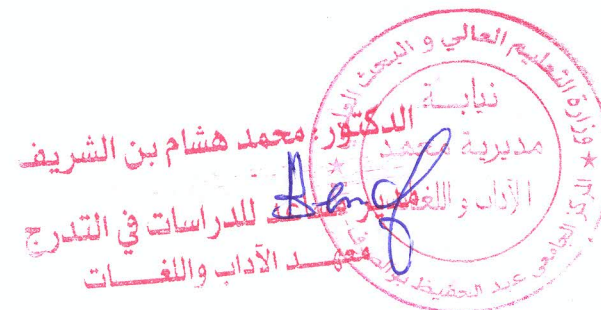 وزارة التعليم العالي و البحث
المركز الجامعي عبد الحفيظ
نيابة
مديرية معهد
الآداب و اللغات
الدكتور: محمد هشام بن الشريف
للدراسات في التدرج
معهـــد الآداب واللغـــات